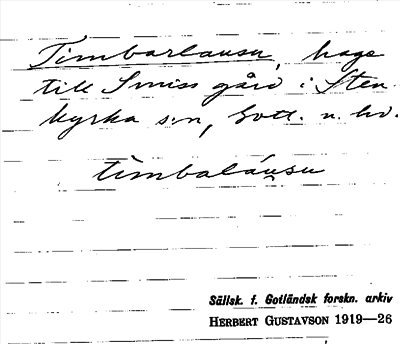 Timbarlausu, hage
till Smiss gård i Sten-
kyrka s:n, Gotl. n. hd.
timbaláusu
Sällsk. f. Gotländsk forskn. arkiv
HERBERT GUSTAVSON 1919—26